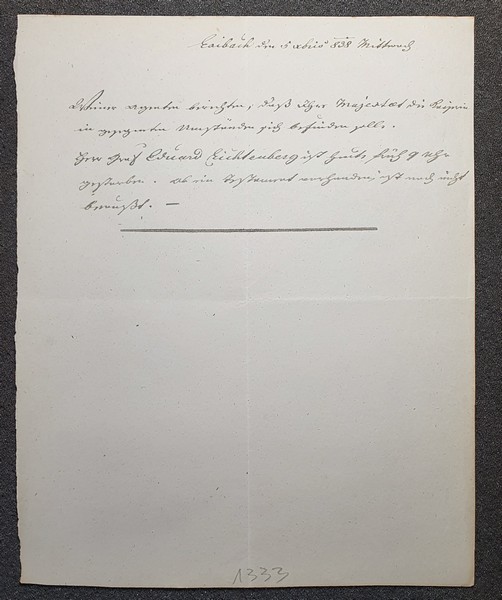 Laibach den 5 xbris 838 Mittwoch
Wiener Agenten berichten, daß Ihre Majestät die Kaiserin
in gesegneten Umständen sich befinden solle.
Herr Graf Eduard Lichtenberg ist heute früh 9 Uhr
gestorben. Ob ein Testament vorhanden, ist noch nicht
bewußt. —
1333